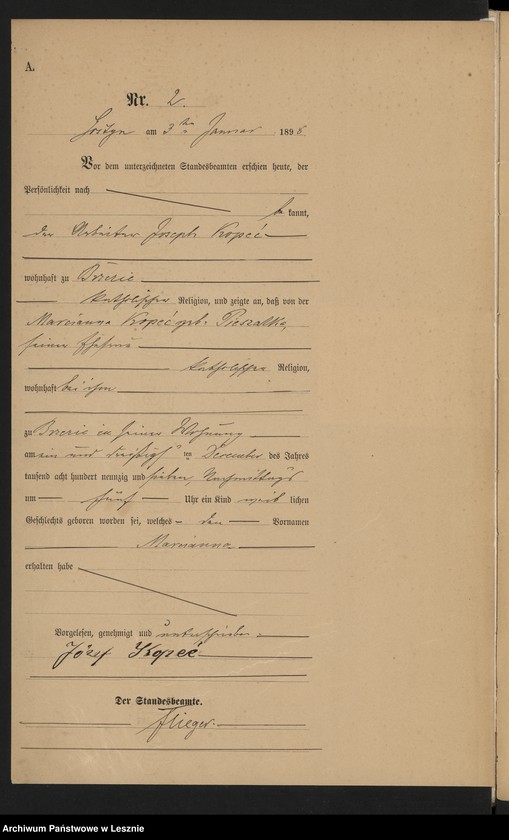 A.
Nr. 2.
am 3ten Januar 1898.
Vor dem unterzeichneten Standesbeamten erschien heute, der
Persönlichkeit nach
be kannt,
der Arbeiter Joseph Kopeć
wohnhaft zu Brzezie
katholischer Religion, und zeigte an, daß von der
Marcianna Kopeć geb. Pieszalka,
seiner Ehefrau
katholischer Religion,
wohnhaft bei ihm
zu Brzezie in seiner Wohnung
am ein und dreißigsten December des Jahres
tausend acht hundert neunzig und sieben, Nachmittags
um fünf Uhr ein Kind weib lichen
Geschlechts geboren worden sei, welches den Vornamen
Marcianna
erhalten habe
Vorgelesen, genehmigt und unterschrieben
Józef Kopeć
Der Standesbeamte.
Flieger.
Archiwum Państwowe w Lesznie